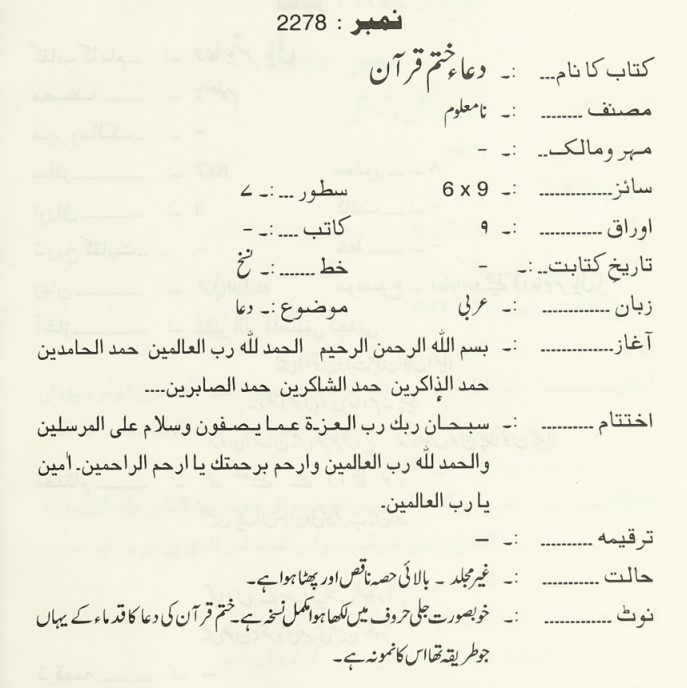 نمبر : 2278
کتاب کا نام... :۔ دعاء ختم قرآن
مصنف ........ :۔ نامعلوم
مہر و مالک.. :۔ -
سائز............. :۔ 6 x 9 سطور ... :۔ ۷
اوراق ........... :۔ ۹ کاتب .... :۔ -
تاریخ کتابت.. :۔ - خط ....... :۔ نسخ
زبان ............ :۔ عربی موضوع :۔ دعا
آغاز.............. :۔ بسم الله الرحمن الرحيم الحمد لله رب العالمين حمد الحامدين
حمد الذاكرين حمد الشاكرين حمد الصابرين....
اختتام ........... :۔ سبحان ربك رب العزة عما يصفون وسلام على المرسلين
والحمد لله رب العالمين وارحم برحمتك يا ارحم الراحمين۔ اٰمين
يا رب العالمين۔
ترقیمہ .......... :۔ —
حالت ........... :۔ غیر مجلد ۔ بالائی حصہ ناقص اور پھٹا ہوا ہے۔
نوٹ ............. :۔ خوبصورت جلی حروف میں لکھا ہوا مکمل نسخہ ہے۔ ختم قرآن کی دعا کا قدماء کے یہاں
جو طریقہ تھا اس کا نمونہ ہے۔